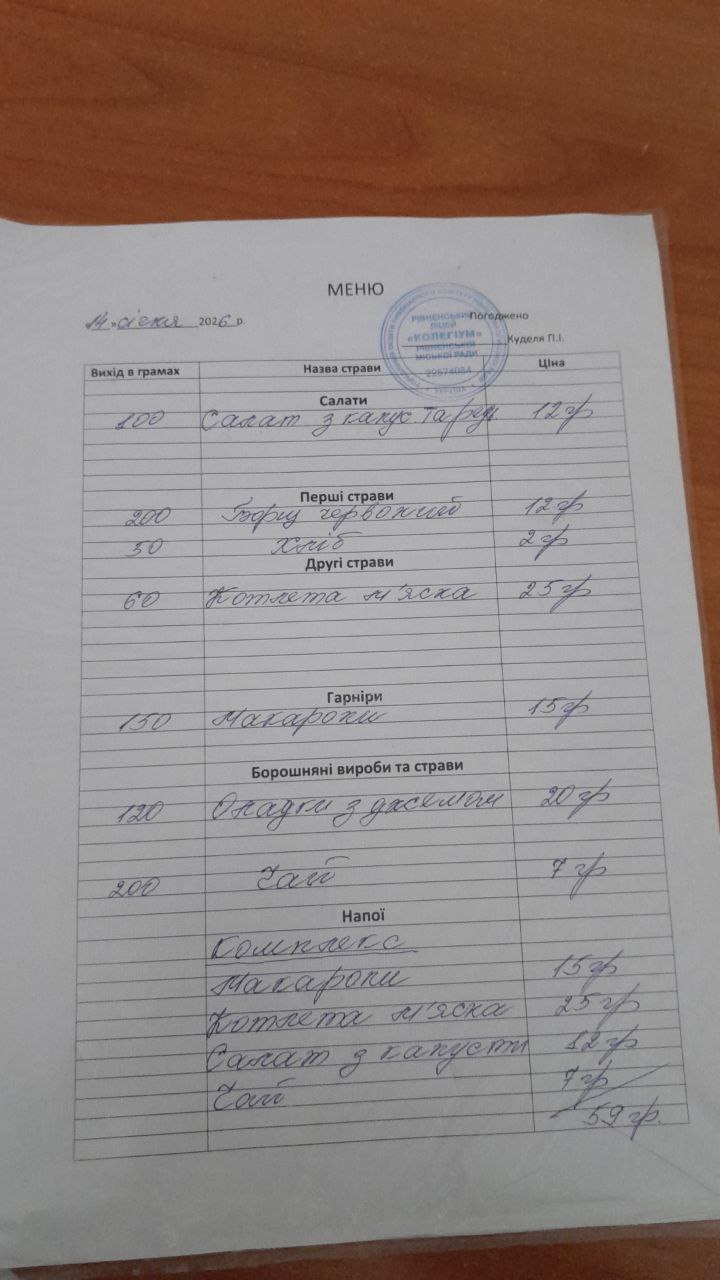 МЕНЮ
14 » січня 2026 р.
Погоджено
Куделя П.І.
РІВНЕНСЬКИЙ
ЛІЦЕЙ
«КОЛЕГІУМ»
РІВНЕНСЬКОЇ
МІСЬКОЇ РАДИ
22574084
УКРАЇНА
Вихід в грамах Назва страви Ціна
Салати
100 Салат з капус. та ред. 12 гр
Перші страви
200 Борщ червоний 12 гр
30 Хліб 2 гр
Другі страви
60 Котлета м'ясна 25 гр
Гарніри
150 Макарони 15 гр
Борошняні вироби та страви
120 Оладки з джемом 20 гр
200 Чай 7 гр
Напої
Комплекс
Макарони 15 гр
Котлета м'ясна 25 гр
Салат з капусти 12 гр
Чай 7 гр
59 гр.